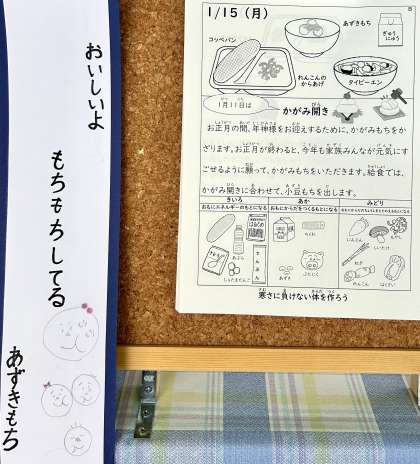 おいしいよ
もちもちしてる
あずきもち
1/15(月)
コッペパン
あずきもち
ぎゅうにゅう
れんこんのからあげ
タイピーエン
1月11日は かがみ開き
お正月の間、年神様をお迎えするために、かがみもちをか
ざります。お正月が終わると、今年も家族みんなが元気にす
ごせるように願って、かがみもちをいただきます。給食では、
かがみ開きに合わせて、小豆もちを出します。
きいろ
あか
みどり
おもにエネルギーのもとになる
おもにからだをつくるもとになる
あぶら
はるさめ
でんぷん
しらたまだんご
あずき
ぶたにく
にんじん
しいたけ
もやし
ねぎ
れんこん
はくさい
寒さに負けない体を作ろう